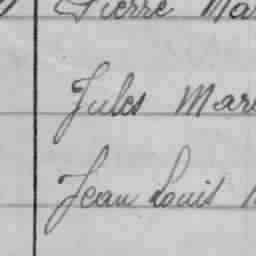 Pierre Mar
Jules Mar
Jean Louis